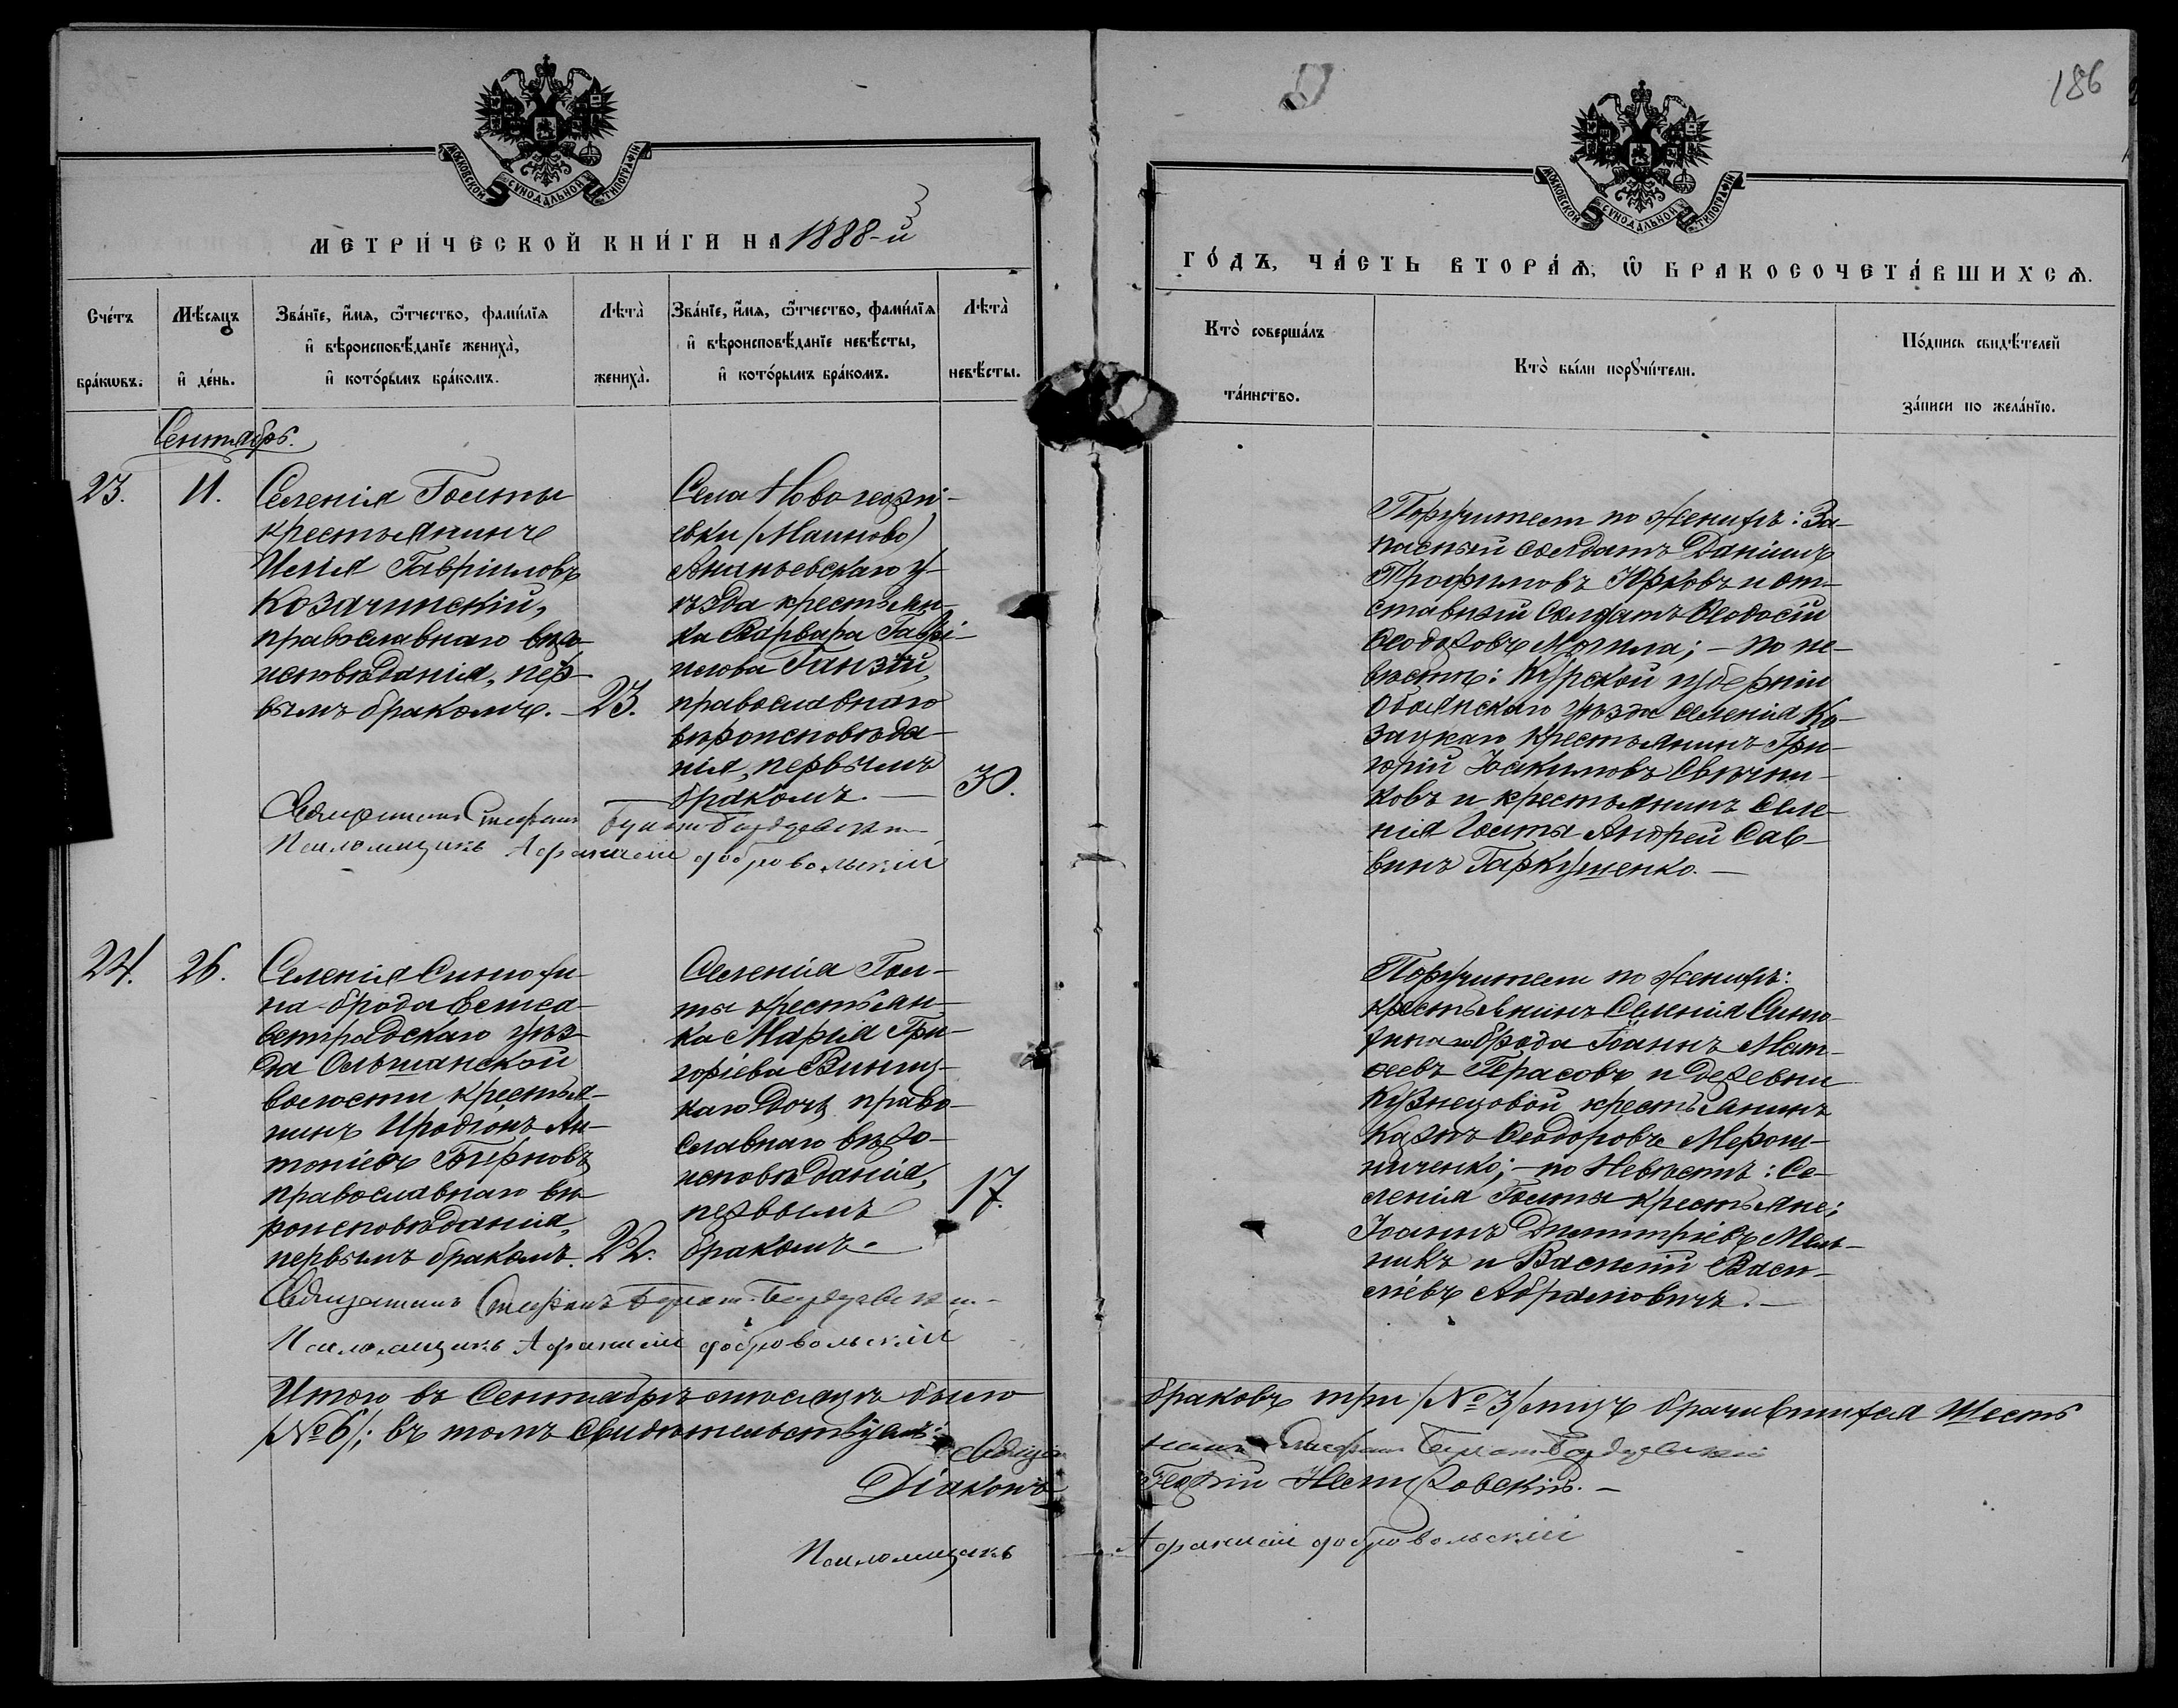 186
МОСКОВСКОЙ СѴНОДАЛЬНОЙ ТИПОГРАФІИ
МЕТРИ́ЧЕСКОЙ КНИ́ГИ НА 1888-й
Сче́тъ бра́кѡвъ.
Мѣ́сяцъ и҆ де́нь.
Зва́нїе, и҆́мѧ, ѻ҆́тчество, фами́лїѧ
и҆ вѣроисповѣ́данїе жениха̀,
и҆ кото́рымъ бра́комъ.
Лѣта̀ жениха̀.
Зва́нїе, и҆́мѧ, ѻ҆́тчество, фами́лїѧ
и҆ вѣроисповѣ́данїе невѣ́сты,
и҆ кото́рымъ бра́комъ.
Лѣта̀ невѣ́сты.
Сентябрь.
23.
11.
Селенія Голты
крестьянинъ
Илія Гавріиловъ
Козачинскій,
православнаго вѣро-
исповѣданія, пер-
вымъ бракомъ.
23.
Села Ново георгі-
евки (Маиново)
Ананьевскаго у-
ѣзда крестьян-
ка Варвара Гаврі-
илова Ганзій,
православнаго
вѣроисповѣда-
нія, первымъ
бракомъ.
30.
Священникъ Стефанъ
Псаломщикъ Афанасій Добровольскій
24.
26.
Селенія Синюхи-
на-брода Елиса-
ветградскаго уѣз-
да Ольшанской
волости крестья-
нинъ Иродіонъ Ан-
тоніевъ
православнаго вѣ-
роисповѣданія,
первымъ бракомъ.
22.
Селенія Гол-
ты крестьян-
ка Марія Гри-
горіева Винниц-
каго дочь право-
славнаго вѣро-
исповѣданія,
первымъ
бракомъ.
17.
Священникъ Стефанъ
Псаломщикъ Афанасій Добровольскій
Итого въ Сентябрѣ мѣсяцѣ было
(№ 6); въ томъ свидѣтельствуемъ:
Священ
Діаконъ
Псаломщикъ
МОСКОВСКОЙ СѴНОДАЛЬНОЙ ТИПОГРАФІИ
ГО́ДЪ, ЧА́СТЬ ВТОРА́Ѧ, Ѡ҆ БРАКОСОЧЕТА́ВШИХСѦ.
Кто̀ соверша́лъ та́инство.
Кто̀ бы́ли порꙋчи́тели.
По́дпись свидѣ́телей за́писи по жела́нїю.
Поручители по женихѣ: За-
пасный солдатъ Даніилъ
Трофимовъ Юрковъ и от-
ставный солдатъ Ѳеодосій
Ѳеодоровъ Могила; – по не-
вѣстѣ: Курской губерніи
Обоянскаго уѣзда селенія Ко-
зацкаго крестьянинъ Гри-
горій Іоакимовъ Свѣчни-
ковъ и крестьянинъ селе-
нія Голты Андрей Сав-
винъ Гаркушенко.
Поручители по женихѣ:
крестьянинъ селенія Синю-
хина-брода Іоаннъ Мат-
ѳеевъ Тарасовъ и деревни
Кузнецовой крестьянинъ
Карпъ Ѳеодоровъ Мерош-
ниченко; – по Невѣстѣ: Се-
ленія Голты крестьяне:
Іоаннъ Димитріевъ Мель-
никъ и Василій Васи-
ліевъ Абрамовичъ.
браковъ три (№ 3) лицъ брачившихся шесть
никъ Стефанъ
Георгій
Афанасій Добровольскій